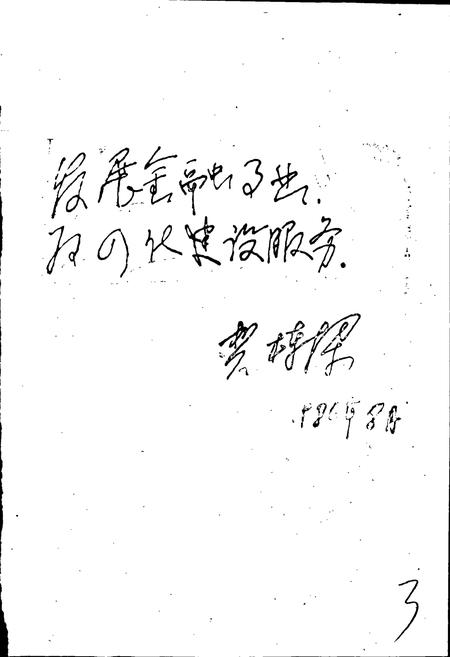 发展金融事业，
为四化建设服务。
贾栋梁
1986年8月
3